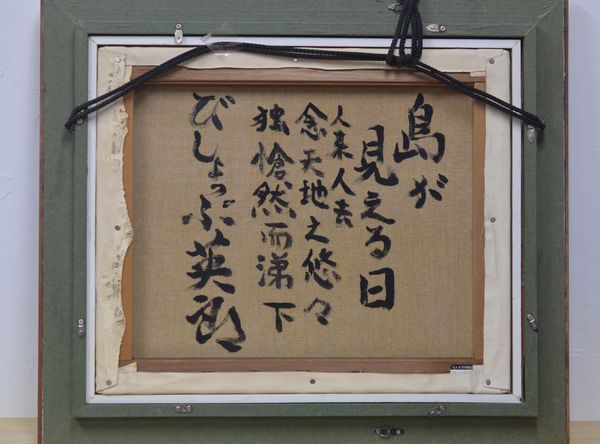 島が
見える日
人来人去
念天地之悠々
独愴然而涕下
びしょっぷ英郎